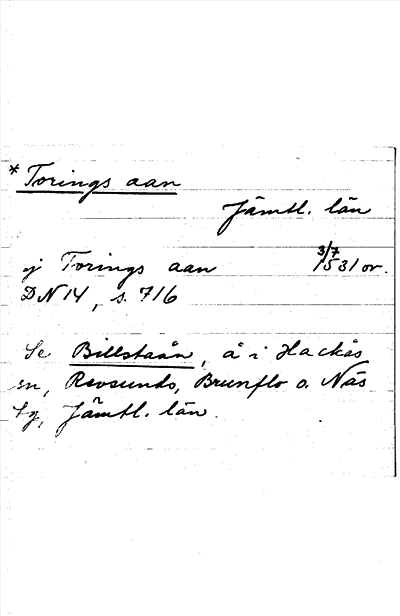 * Torings aan
Jämtl. län
j Torings aan 3/7 1531 or.
DN 14, s. 716
Se Billstaån, å i Hackås
sn, Revsunds, Brunflo o. Näs
tg, Jämtl. län.